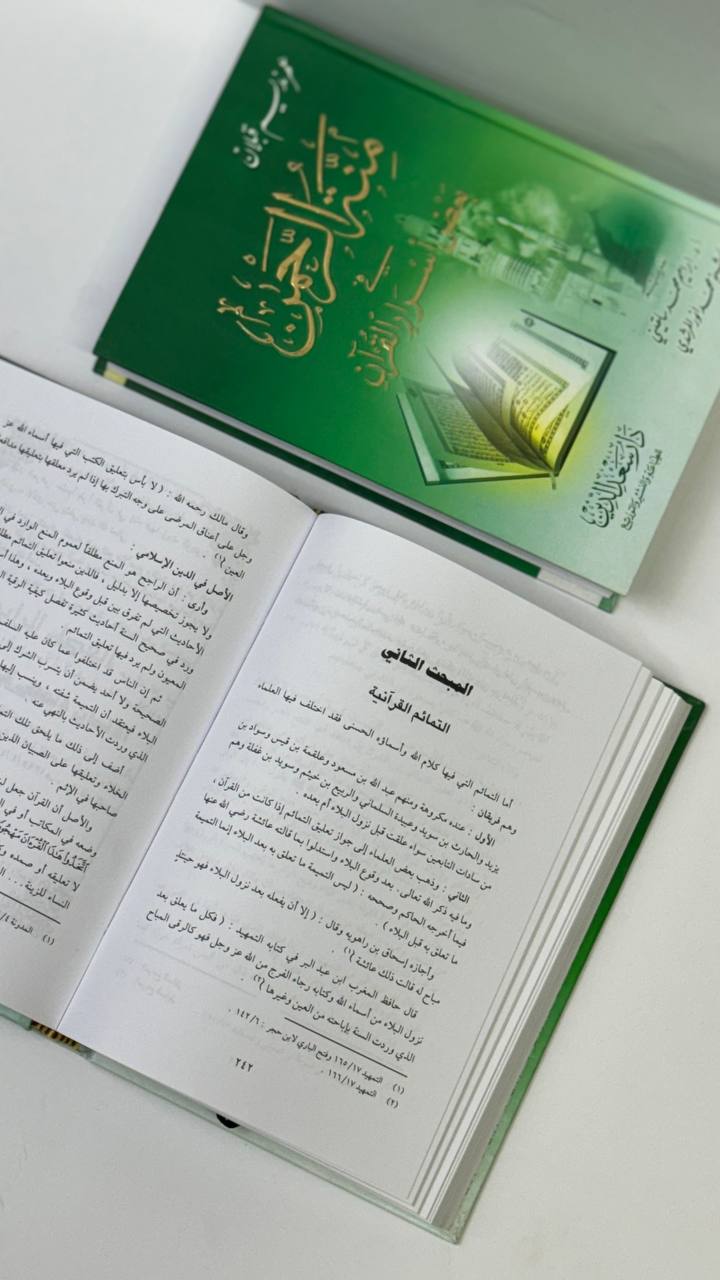 منة الرحمن
في
بعض أسرار القرآن
دار سعد الدين
وقال مالك رحمه الله : ( لا بأس بتعليق الكتب التي فيها أسماء الله عز
وجل على أعناق المرضى على وجه التبرك بها إذا لم يرد معلقها بتعليقها
العين )(١) .
الأصل في الدين الإسلامي :
وأرى : أن الراجح هو المنع مطلقاً لعموم المنع الوارد في
الأحاديث التي لم تفرق بين قبل وقوع البلاء وبعده ،
ولا يجوز تخصيصها إلا بدليل ، فالذين منعوا تعليق التمائم
ورد في صحيح السنة أحاديث كثيرة تفصل كيفية الرقية
المعيون ولم يرد فيها تعليق التمائم .
ثم إن الناس قد اختلفوا عما كان عليه السلف
الصحيحة ولا أحد يضمن أن يتسرب الشرك إلى
البلاء فيعتقد أن التميمة شفته ، وينسب إليها
الذي وردت الأحاديث بالنهي عنه .
أضف إلى ذلك ما يلحق تلك
الخلاء وتعليقها على الصبيان الذين
صاحبها في الإثم
والأصل أن القرآن جعل
وضعه في المكاتب أو في
اتَّخَذُوا هَٰذَا الْقُرْآنَ
لا تعليقه أو صمده
النساء للزينة . . .
(١) المدونة
المبحث الثاني
التمائم القرآنية
أما التمائم التي فيها كلام الله وأسماؤه الحسنى فقد اختلف فيها العلماء
وهم فريقان :
الأول : عنده مكروهة ومنهم عبد الله بن مسعود وعلقمة بن قيس وسواد بن
يزيد والحارث بن سويد وعبيدة السلماني والربيع بن خيثم وسويد بن غفلة وهم
من سادات التابعين سواء علقت قبل نزول البلاء أم بعده .
الثاني : وذهب بعض العلماء إلى جواز تعليق التمائم إذا كانت من القرآن ،
وما فيه ذكر الله تعالى . بعد وقوع البلاء واستدلوا بما قالته عائشة رضي الله عنها
فيما أخرجه الحاكم وصححه : ( ليس التميمة ما تعلق به بعد البلاء إنما التميمة
ما تعلق به قبل البلاء ) .
وأجازه إسحاق بن راهويه وقال : ( إلا أن يفعله بعد نزول البلاء فهو حينئذٍ
مباح له قالت ذلك عائشة )(١) .
قال حافظ المغرب ابن عبد البر في كتابه التمهيد : ( فكل ما يعلق بعد
نزول البلاء من أسماء الله وكتابه رجاء الفرج من الله عز وجل فهو كالرقى المباح
الذي وردت السنة بإباحته من العين وغيرها )(٢) .
(١) التمهيد ١٦٥/١٧ وفتح الباري لابن حجر : ١٤٢/٦ .
(٢) التمهيد ١٦٦/١٧ .
٢٤٢